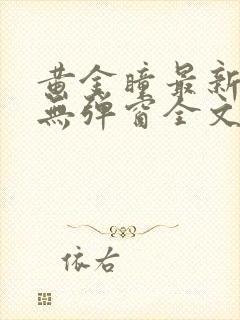 黄金瞳最新
無弹窗全文
依右